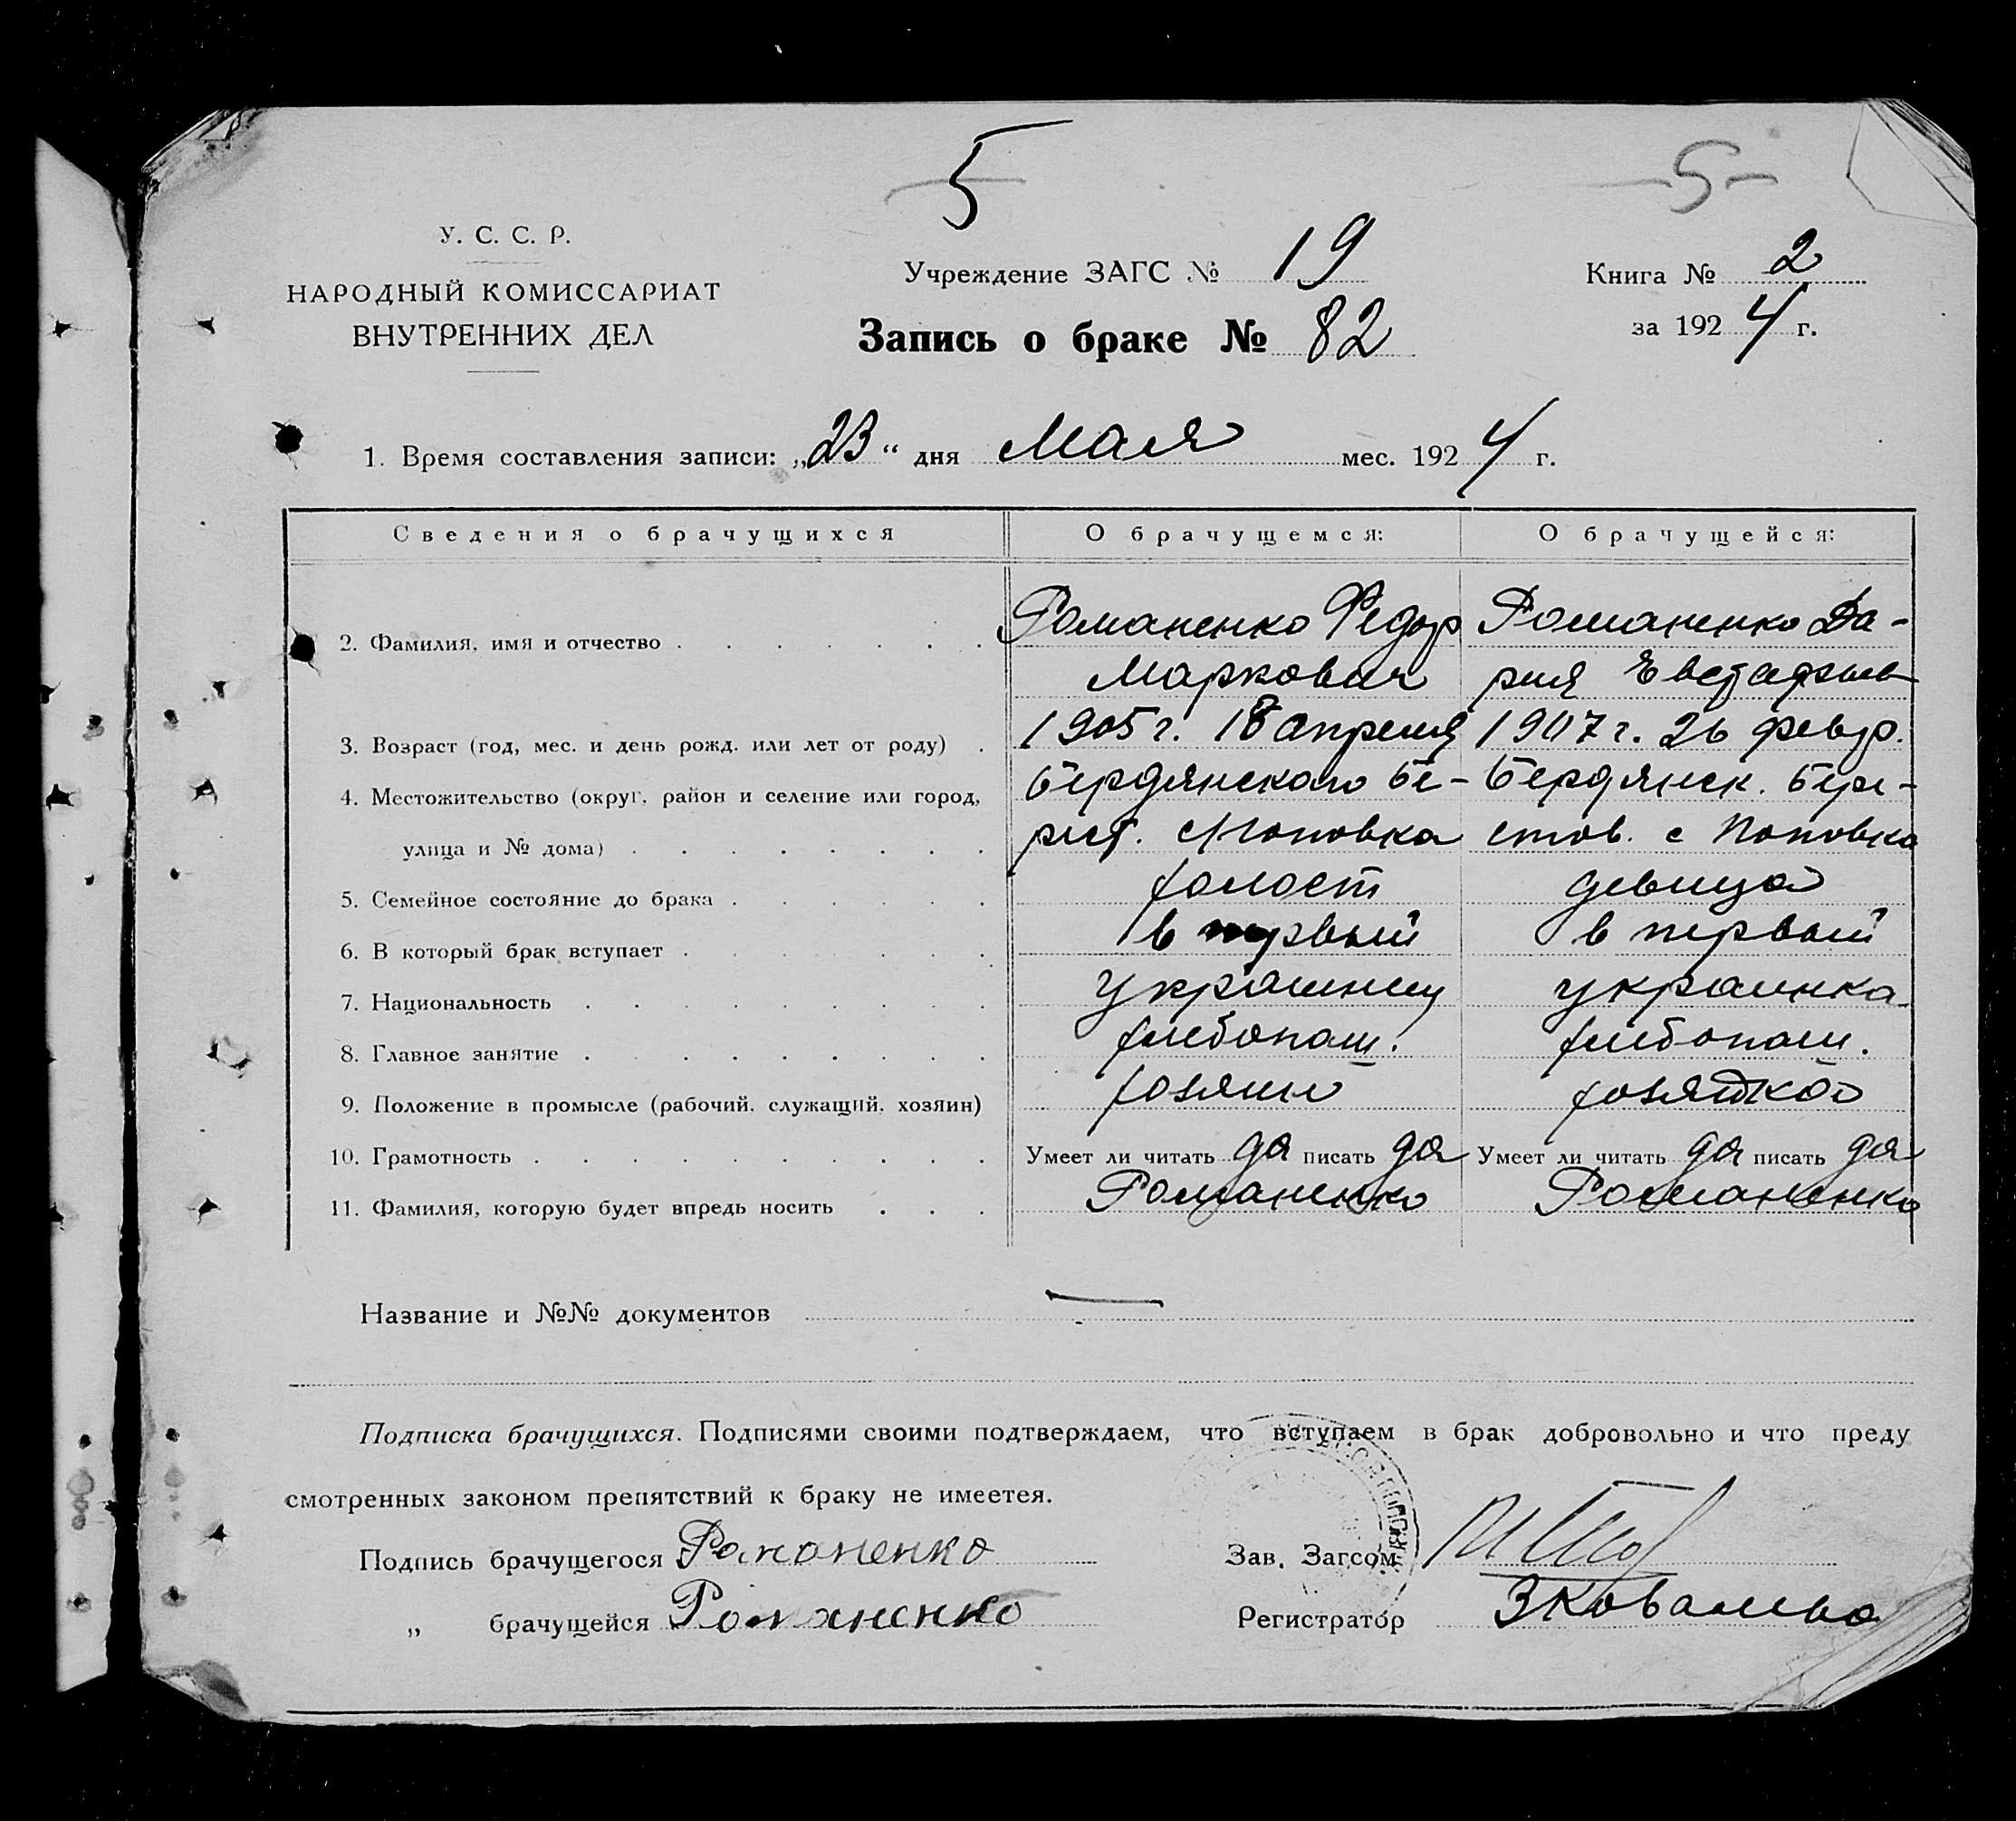 5
-5-
У. С. С. Р.
НАРОДНЫЙ КОМИССАРИАТ
ВНУТРЕННИХ ДЕЛ
Учреждение ЗАГС № 19
Запись о браке № 82
Книга № 2
за 1924 г.
1. Время составления записи: „23“ дня Мая мес. 1924 г.
Сведения о брачущихся О брачущемся: О брачущейся:
2. Фамилия, имя и отчество Романенко Федор Романенко Да-
Маркович рия
3. Возраст (год, мес. и день рожд. или лет от роду) 1905 г. 18 апреля 1907 г. 26 февр.
4. Местожительство (округ, район и селение или город, Бердянского Бе- Бердянск. Бере-
улица и № дома) рест. с Поповка стов. с Поповка
5. Семейное состояние до брака холост девица
6. В который брак вступает в первый в первый
7. Национальность украинец украинка
8. Главное занятие хлебопаш. хлебопаш.
9. Положение в промысле (рабочий, служащий, хозяин) хозяин
10. Грамотность Умеет ли читать да писать да Умеет ли читать да писать да
11. Фамилия, которую будет впредь носить Романенко Романенко
Название и №№ документов —
Подписка брачущихся. Подписями своими подтверждаем, что вступаем в брак добровольно и что преду
смотренных законом препятствий к браку не имеетея.
Подпись брачущегося Романенко Зав. Загсом
„ брачущейся Романенко Регистратор